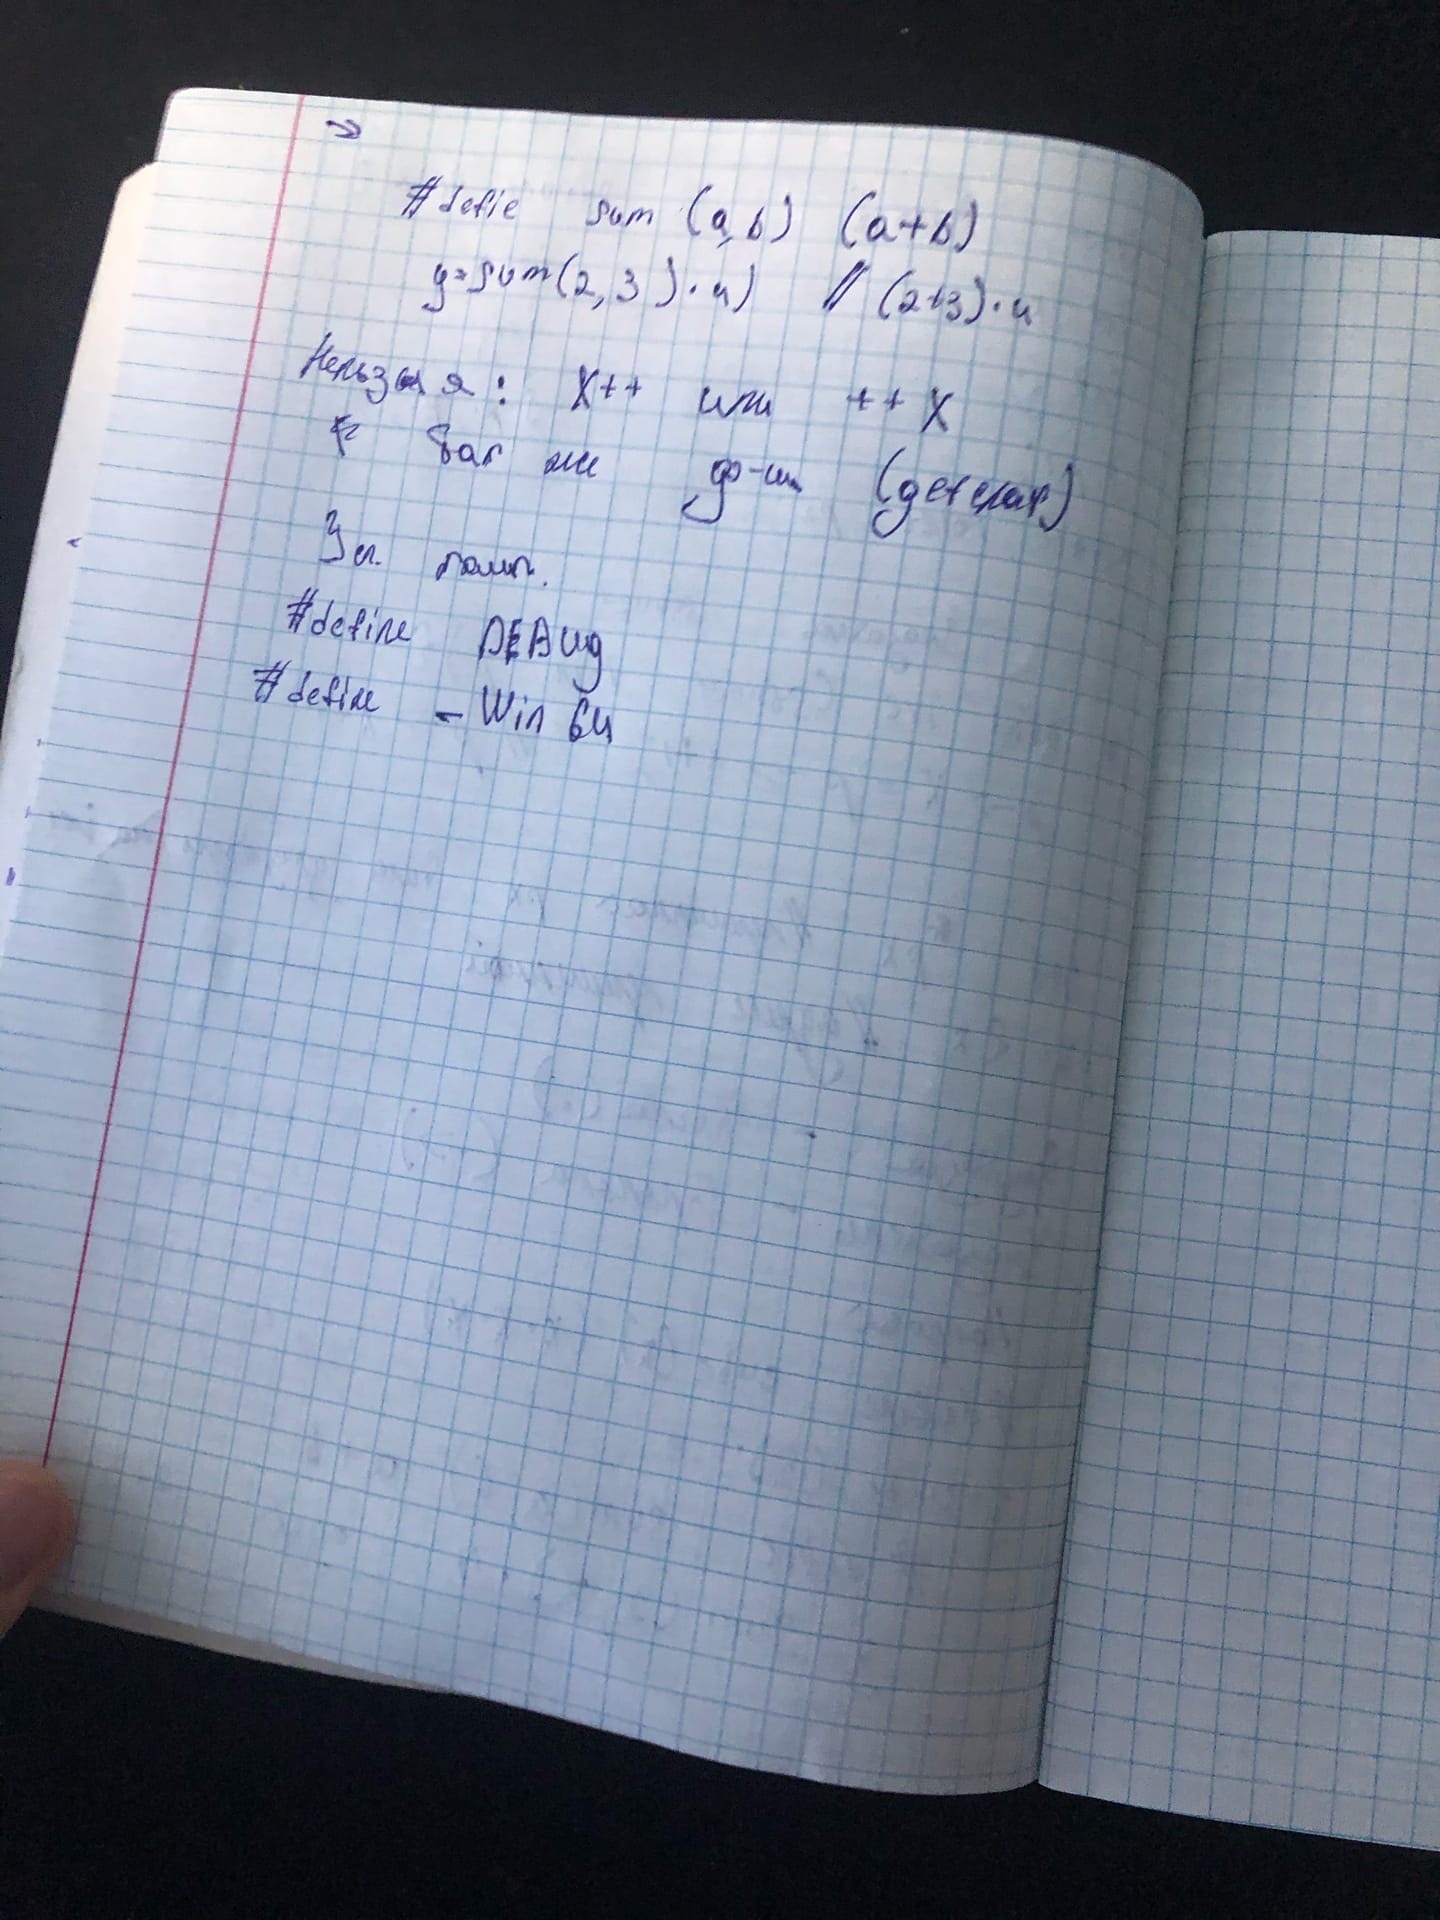 →
#defie sum (a,b) (a+b)
y=sum(2,3)·4) // (2+3)·4
Нельзя: X++ или ++X
Так же ф-ии (getchar)
Усл. комп.
#define DEBUg
#define _Win 64